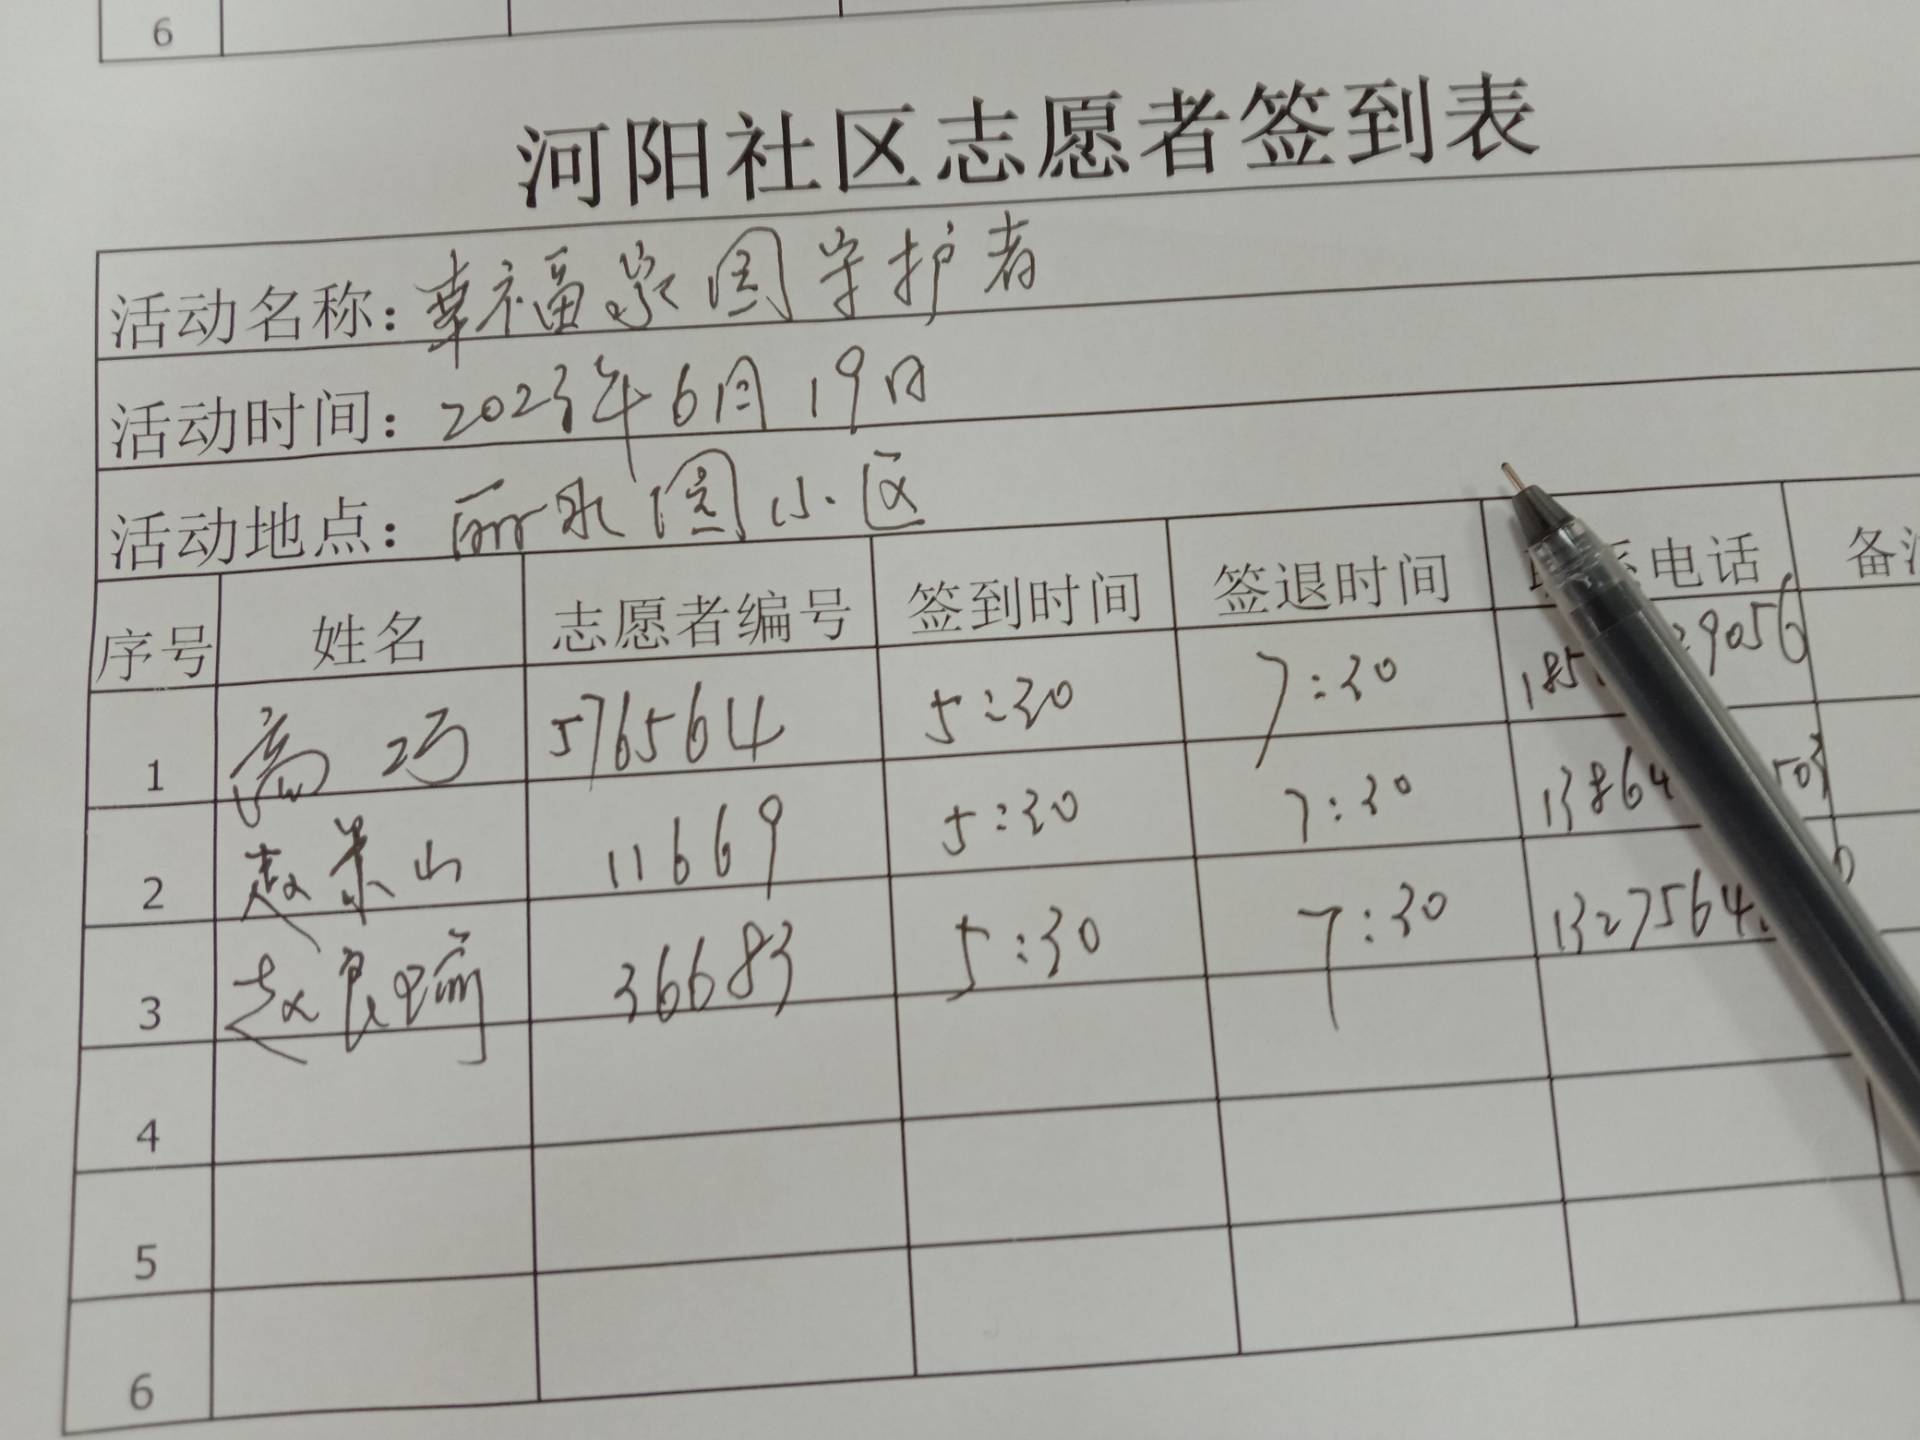 6
河阳社区志愿者签到表
活动名称：幸福家园守护者
活动时间：2023年6月19日
活动地点：丽水园小区
序号 姓名 志愿者编号 签到时间 签退时间 电话 备
1 高巧 576564 5:30 7:30 185 9056
2 赵 山 11669 5:30 7:30 13864 50
3 赵良 36683 5:30 7:30 1327564
4
5
6